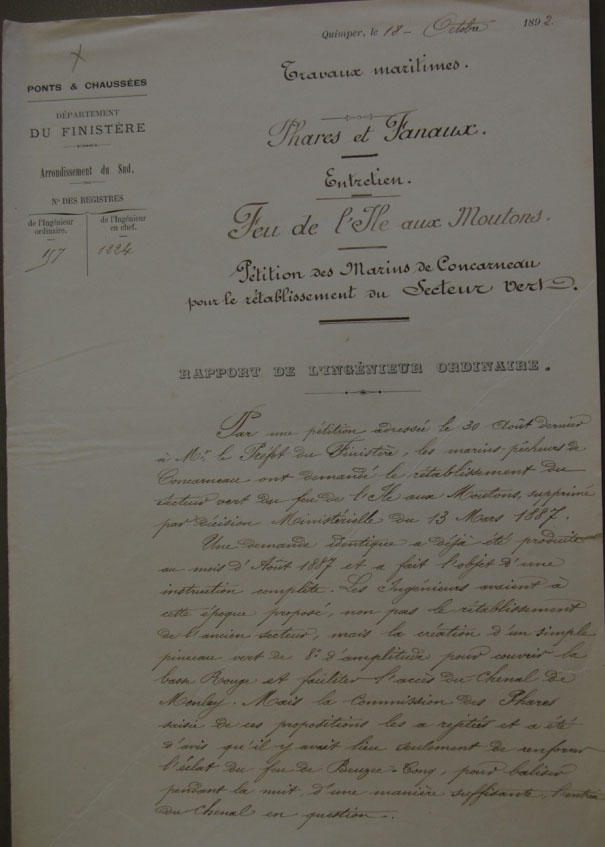 Quimper, le 18 - Octobre 1892.
PONTS & CHAUSSÉES
DÉPARTEMENT
DU FINISTÈRE
Arrondissement du Sud.
Nos DES REGISTRES
de l'Ingénieur ordinaire.
de l'Ingénieur en chef.
157
1224
Travaux maritimes.
Phares et Fanaux.
Entretien.
Feu de l'Ile aux Moutons.
Pétition des Marins de Concarneau
pour le rétablissement du Secteur vert.
RAPPORT DE L'INGÉNIEUR ORDINAIRE.
Par une pétition adressée le 30 Août dernier
à Mr. le Préfet du Finistère, les marins-pêcheurs de
Concarneau ont demandé le rétablissement du
secteur vert du feu de l'Ile aux Moutons, supprimé
par décision Ministérielle du 13 Mars 1887.
Une demande identique a déjà été produite
au mois d'Août 1887 et a fait l'objet d'une
instruction complète. Les Ingénieurs avaient à
cette époque proposé, non pas le rétablissement
de l'ancien secteur, mais la création d'un simple
pinceau vert de 8° d'amplitude pour couvrir la
basse Rouge et faciliter l'accès du Chenal de
. Mais la Commission des Phares
saisie de ces propositions les a rejetées et a été
d'avis qu'il y avait lieu seulement de renforcer
l'éclat du feu de Beuzec-Conq, pour baliser
pendant la nuit, d'une manière suffisante, l'entrée
du Chenal en question.